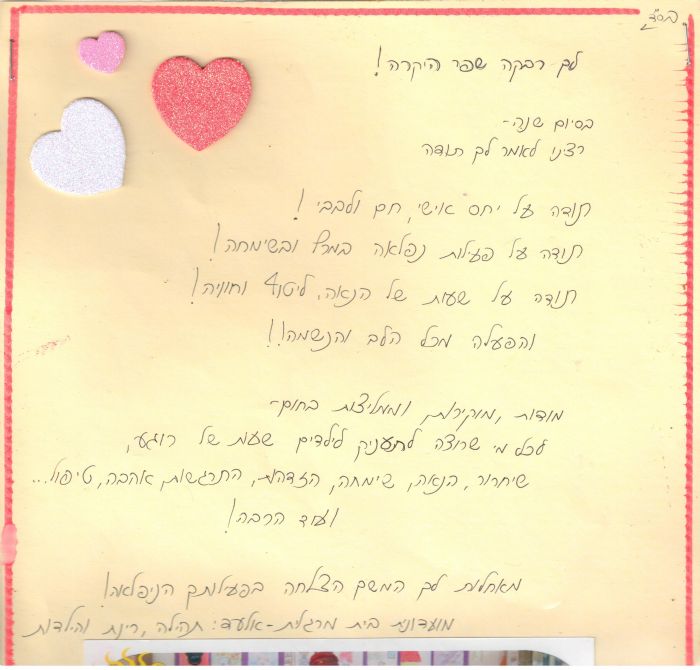 בס"ד
לך רבקה שפר היקרה!
בסיום שנה-
רצינו לאמר לך תודה
תודה על יחס אישי, חם ולבבי!
תודה על פעילות נפלאה במרץ ובשימחה!
תודה על שעות של הנאה, ליטוף וחוויה!
והפעלה מכל הלב והנשמה!!
מודות, מוקירות, וממליצות בחום-
לכל מי שרוצה להעניק לילדים שעות של רוגע,
שיחרור, הנאה, שימחה, הזדהות, התרגשות, אהבה, טיפול...
ועוד הרבה!
מאחלות לך המשך הצלחה בפעילותך הניפלאה!
מועדונית בית מרגלית-אלעד: תהילה, רינת והילדות